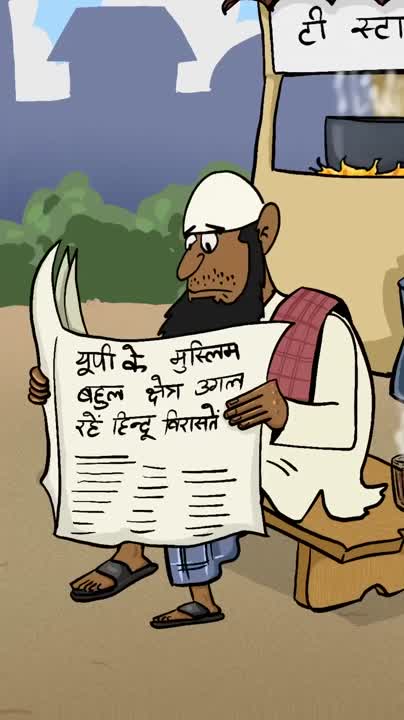 टी स्टा
यूपी के मुस्लिम
बहुल क्षेत्र उगल
रहें हिन्दू विरासतें